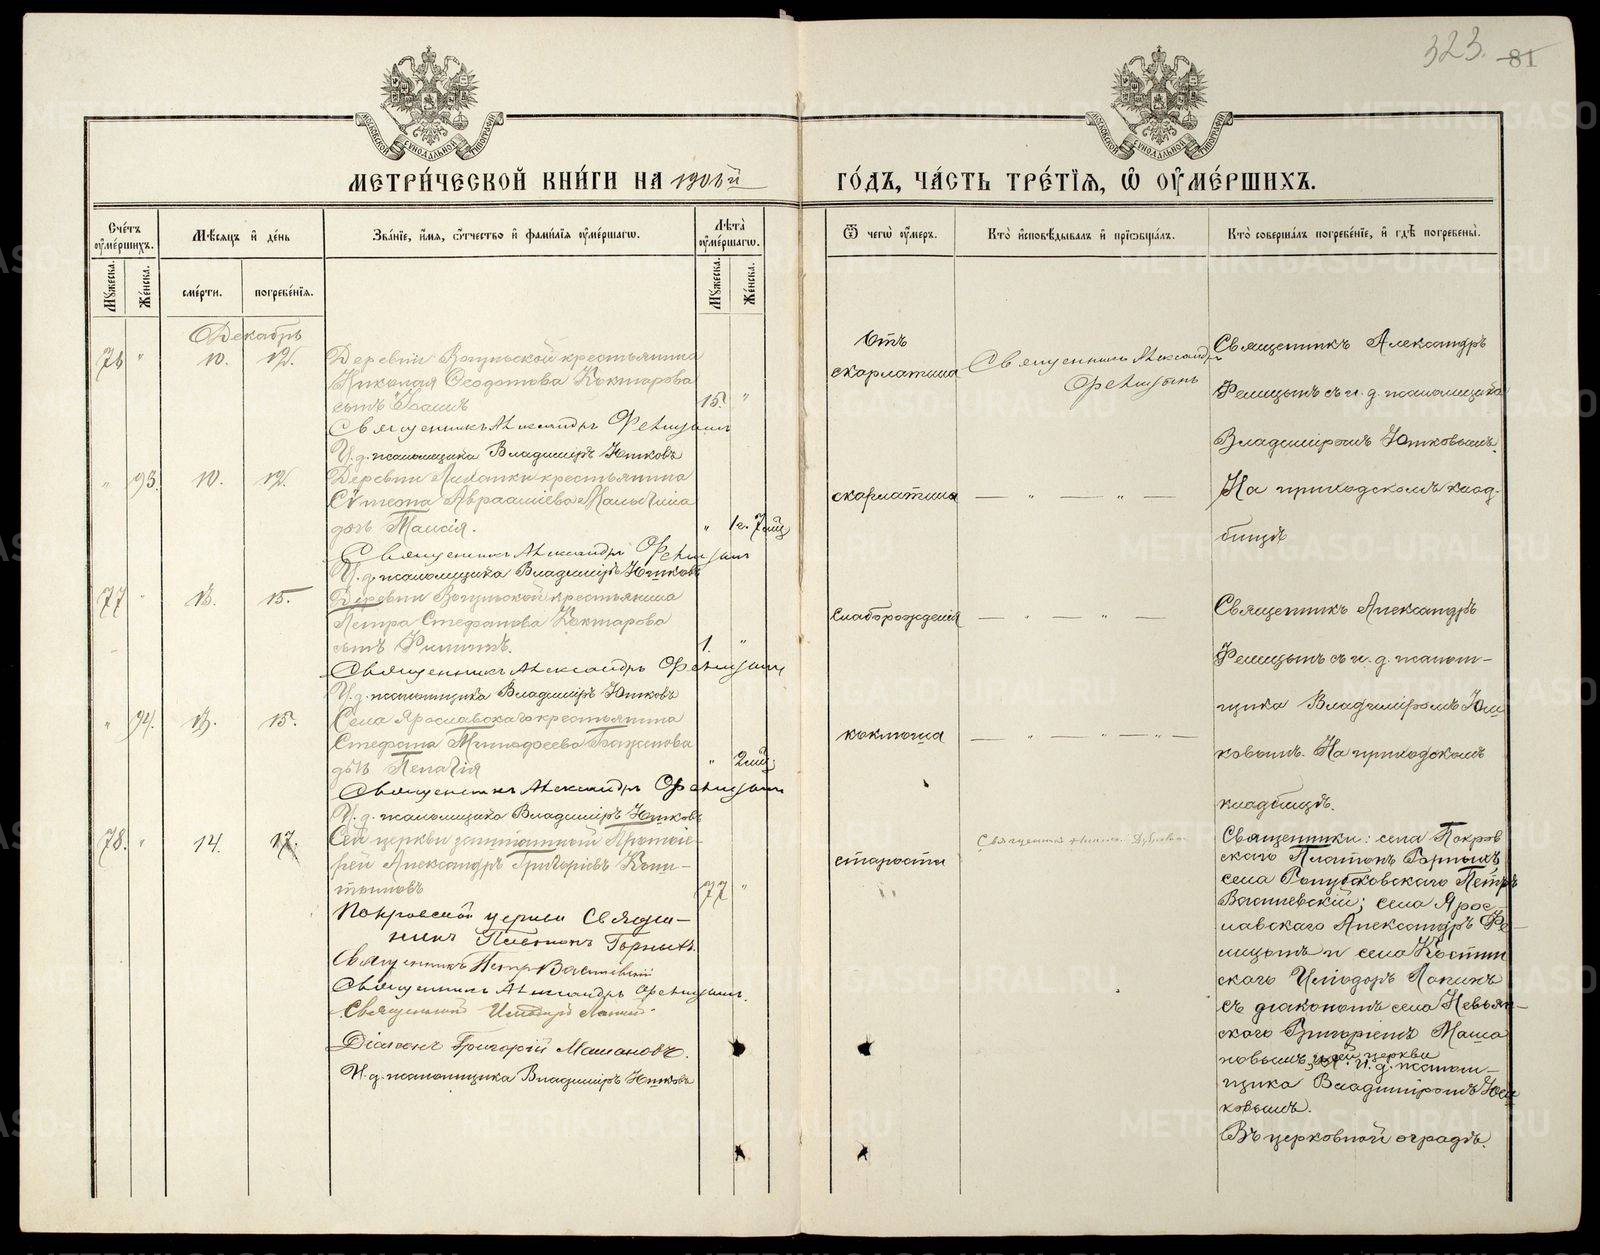 323. 81
МОСКОВСКОЙ СУНОДАЛЬНОЙ ТИПОГРАФІИ
МОСКОВСКОЙ СУНОДАЛЬНОЙ ТИПОГРАФІИ
МЕТРИ́ЧЕСКОЙ КНИ́ГИ НА 1906й ГО́ДЪ, ЧА́СТЬ ТРЕ́ТІѦ, Ѡ ОУМЕ́РШИХЪ.
Сче́тъ оуме́ршихъ.
Мѣ́сяцъ и де́нь
Зва́ніе, и́мя, о́тчество и фами́лія оуме́ршагѡ.
Лѣта̀ оуме́ршагѡ.
Ѿ чегѡ̀ оу́меръ.
Кто̀ исповѣ́дывалъ и прїѡбща́лъ.
Кто̀ соверша́лъ погребе́ніе, и гдѣ̀ погребены̀.
Му́жеска. Же́нска. сме́рти. погребе́нія. Му́жеска. Же́нска.
Декабрь
76 " 10. 12. Деревни Вогульской крестьянина
Николая Ѳеодотова Коктарова
сынъ Іоаннъ 15. "
Священникъ Александръ Фелицынъ
И. д. псаломщика Владиміръ Юшковъ
Отъ
скарлатина
Священникъ Александръ
Фелицынъ
Священникъ Александръ
Фелицынъ съ и. д. псаломщика
Владиміромъ Юшковымъ.
На приходскомъ клад-
бищѣ
" 93. 10. 12. Деревни крестьянина
Сѵмеона Авраамиева Малыгина
дочь Таисія. " 1 г. 7 мц
Священникъ Александръ Фелицынъ
И. д. псаломщика Владиміръ Юшковъ
скарлатина — " — " —
77 " 13. 15. Деревни Вогульской крестьянина
Петра Стефанова Коктарова
сынъ Филиппъ. 1. "
Священникъ Александръ Фелицынъ
И. д. псаломщика Владиміръ Юшковъ
слаборожденія — " — " —
Священникъ Александръ
Фелицынъ съ и. д. псалом-
щика Владиміромъ Юш-
ковымъ. На приходскомъ
кладбищѣ.
" 94. 13. 15. Села Ярославскаго крестьянина
Стефана Баженова
дочь Пелагія " 2 мц.
Священникъ Александръ Фелицынъ
И. д. псаломщика Владиміръ Юшковъ
коклюша — " — " — " —
78. " 14. 17. Сей церкви заштатный Протоіе-
рей Александръ Григоріевъ Коп-
тыловъ 77 "
Покровской церкви Священ-
никъ Платонъ Горныхъ.
Священникъ Петръ
Священникъ Александръ Фелицынъ.
Священникъ Иліодоръ
Діаконъ Григорій Машановъ.
И. д. псаломщика Владиміръ Юшковъ
старости
Священникъ
Священники: села Покров-
скаго Платонъ Горныхъ
села Голубковскаго Петръ
села Ярос-
лавскаго Александръ Фе-
лицынъ и села Костин-
скаго Иліодоръ
съ діакономъ села Невьян-
скаго Григоріемъ Маша-
новымъ, сей церкви и. д. псалом-
щика Владиміромъ Юш-
ковымъ.
Въ церковной оградѣ.
METRIKI.GASO-URAL.RU